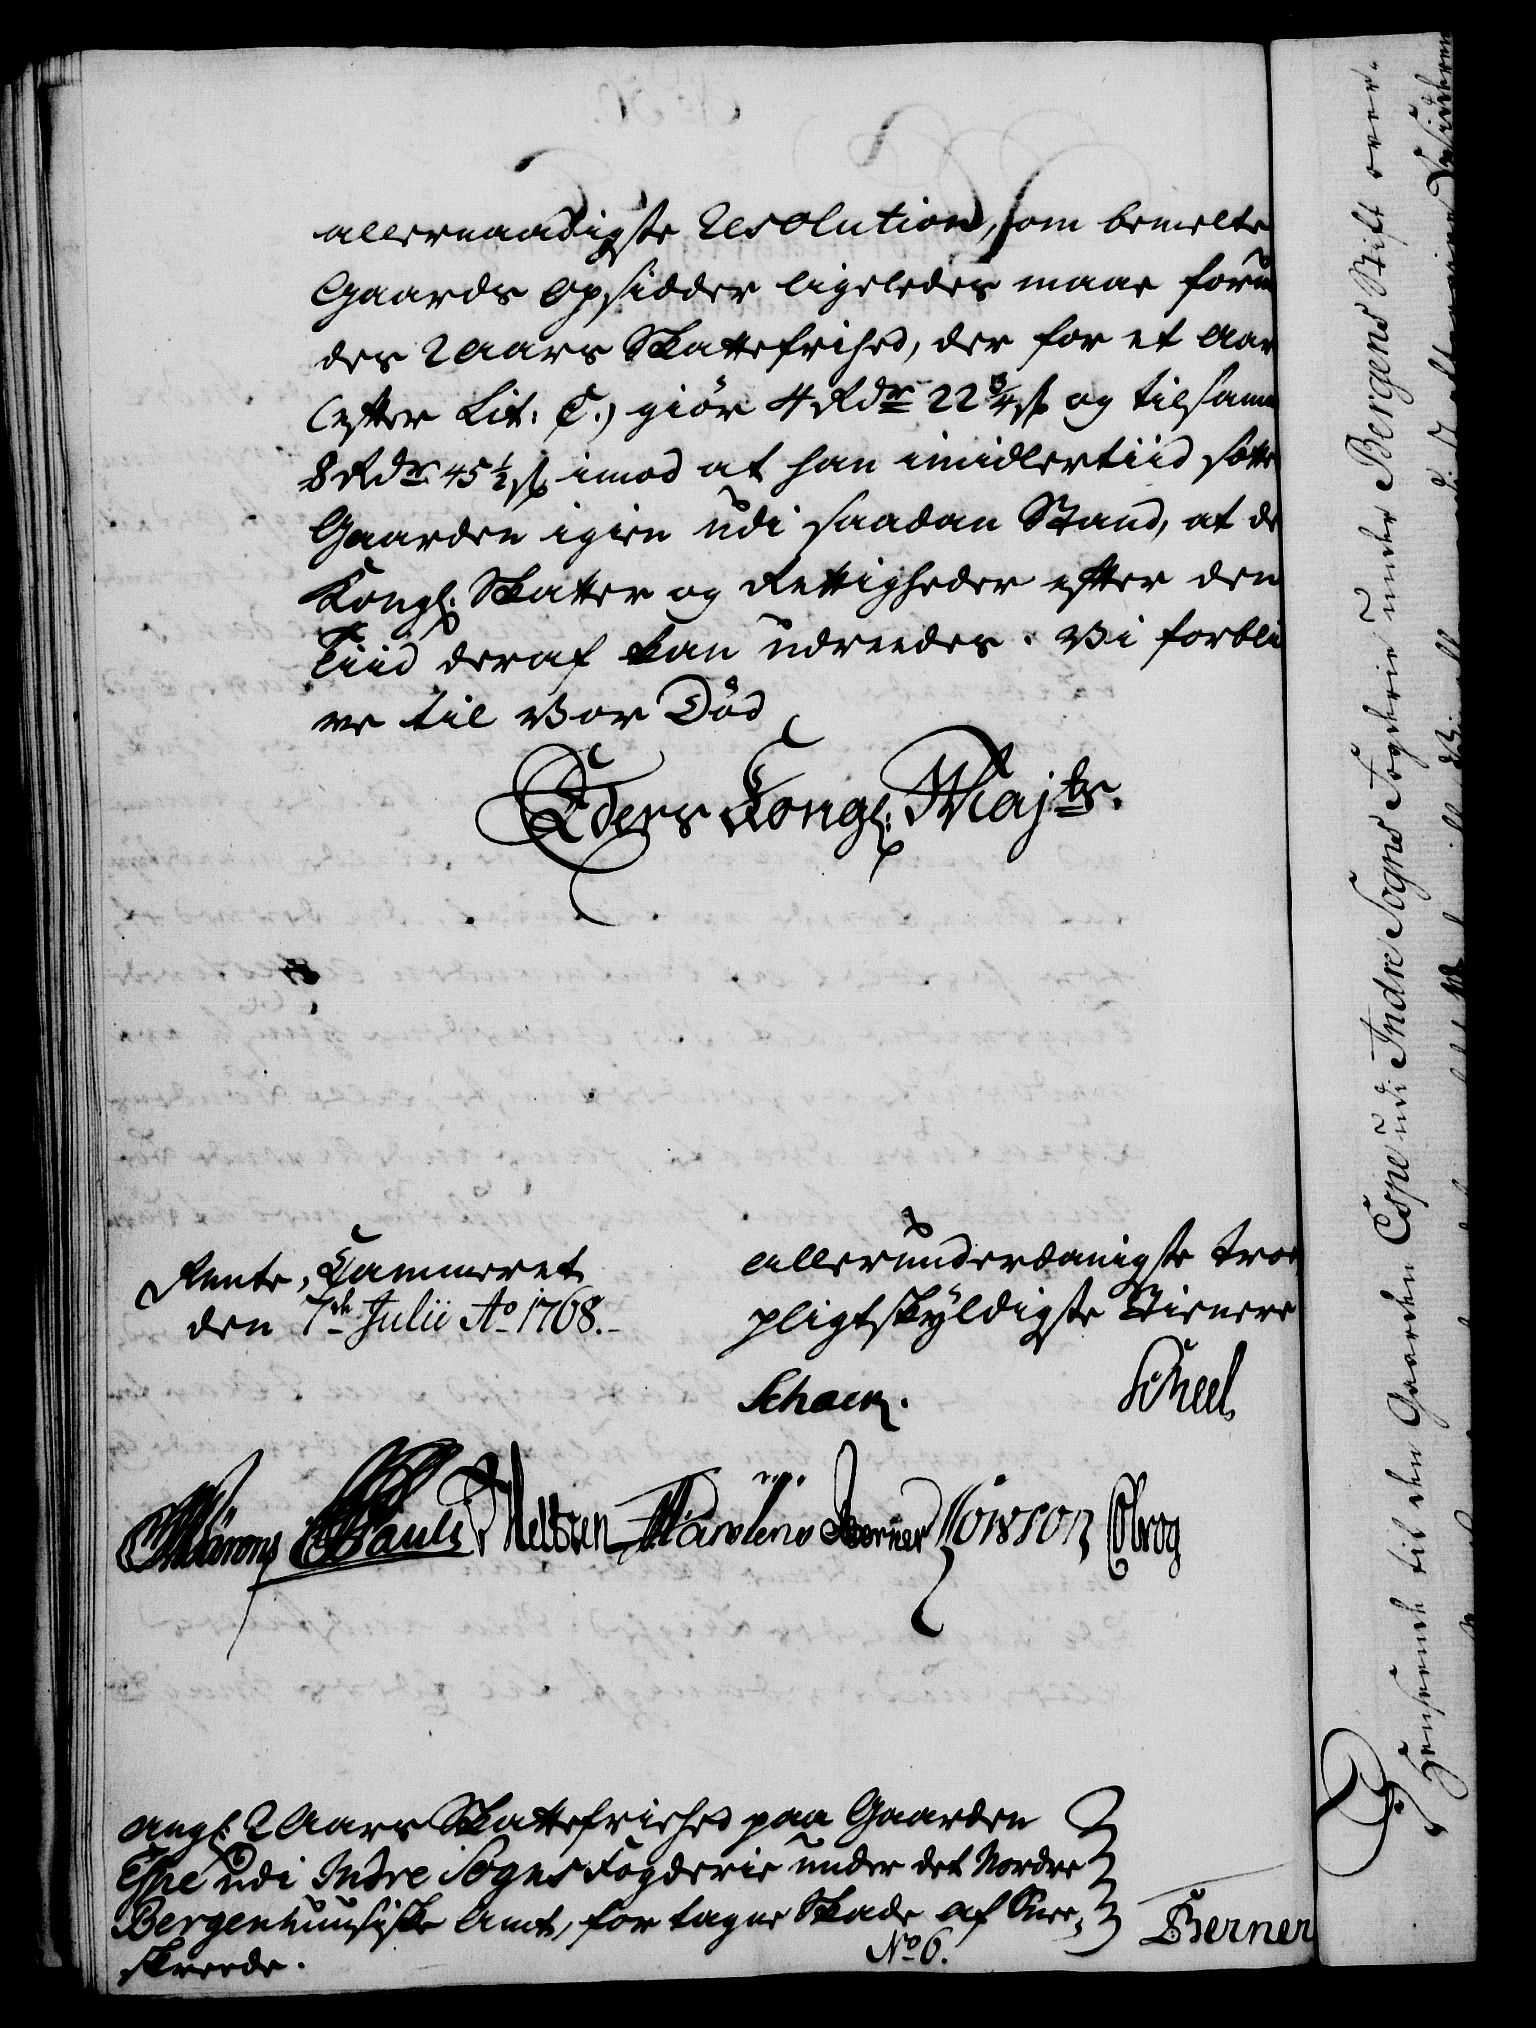 allernaadigste Resolution, som bemelte
Gaards Opsidder ligeledes maae forun
des 2 Aars Skattefrihed, der for et Aar
(efter Lit: C.) giör 4 Rdr 22 3/4 s og tilsam
8 Rdr 45 1/2 s imod at han imidlertiid sætte
Gaarden igien udi saadan Stand, at de
Kongl: Skatter og Rettigheder efter den
Tiid deraf kan udreedes. Vi forbli
ve til Vor Död
Eders Kongl: Majts.
Rente-Cammeret
den 7de Julii Ao 1768.
allerunderdanigste troe
pligtskyldigste Tienere
Schack.
Scheel
Berner
angl: 2 Aars Skattefriehed paa Gaarden
Espe udi Indre Sogns Fogderie under det Nordre
Bergenhuusiske Amt, for tagne Skade af Snee-
skreede.
No 6.
Berner
I Henseende til den Gaarden Espe udi Indre Sogns Fogderie under Bergens Stift over-